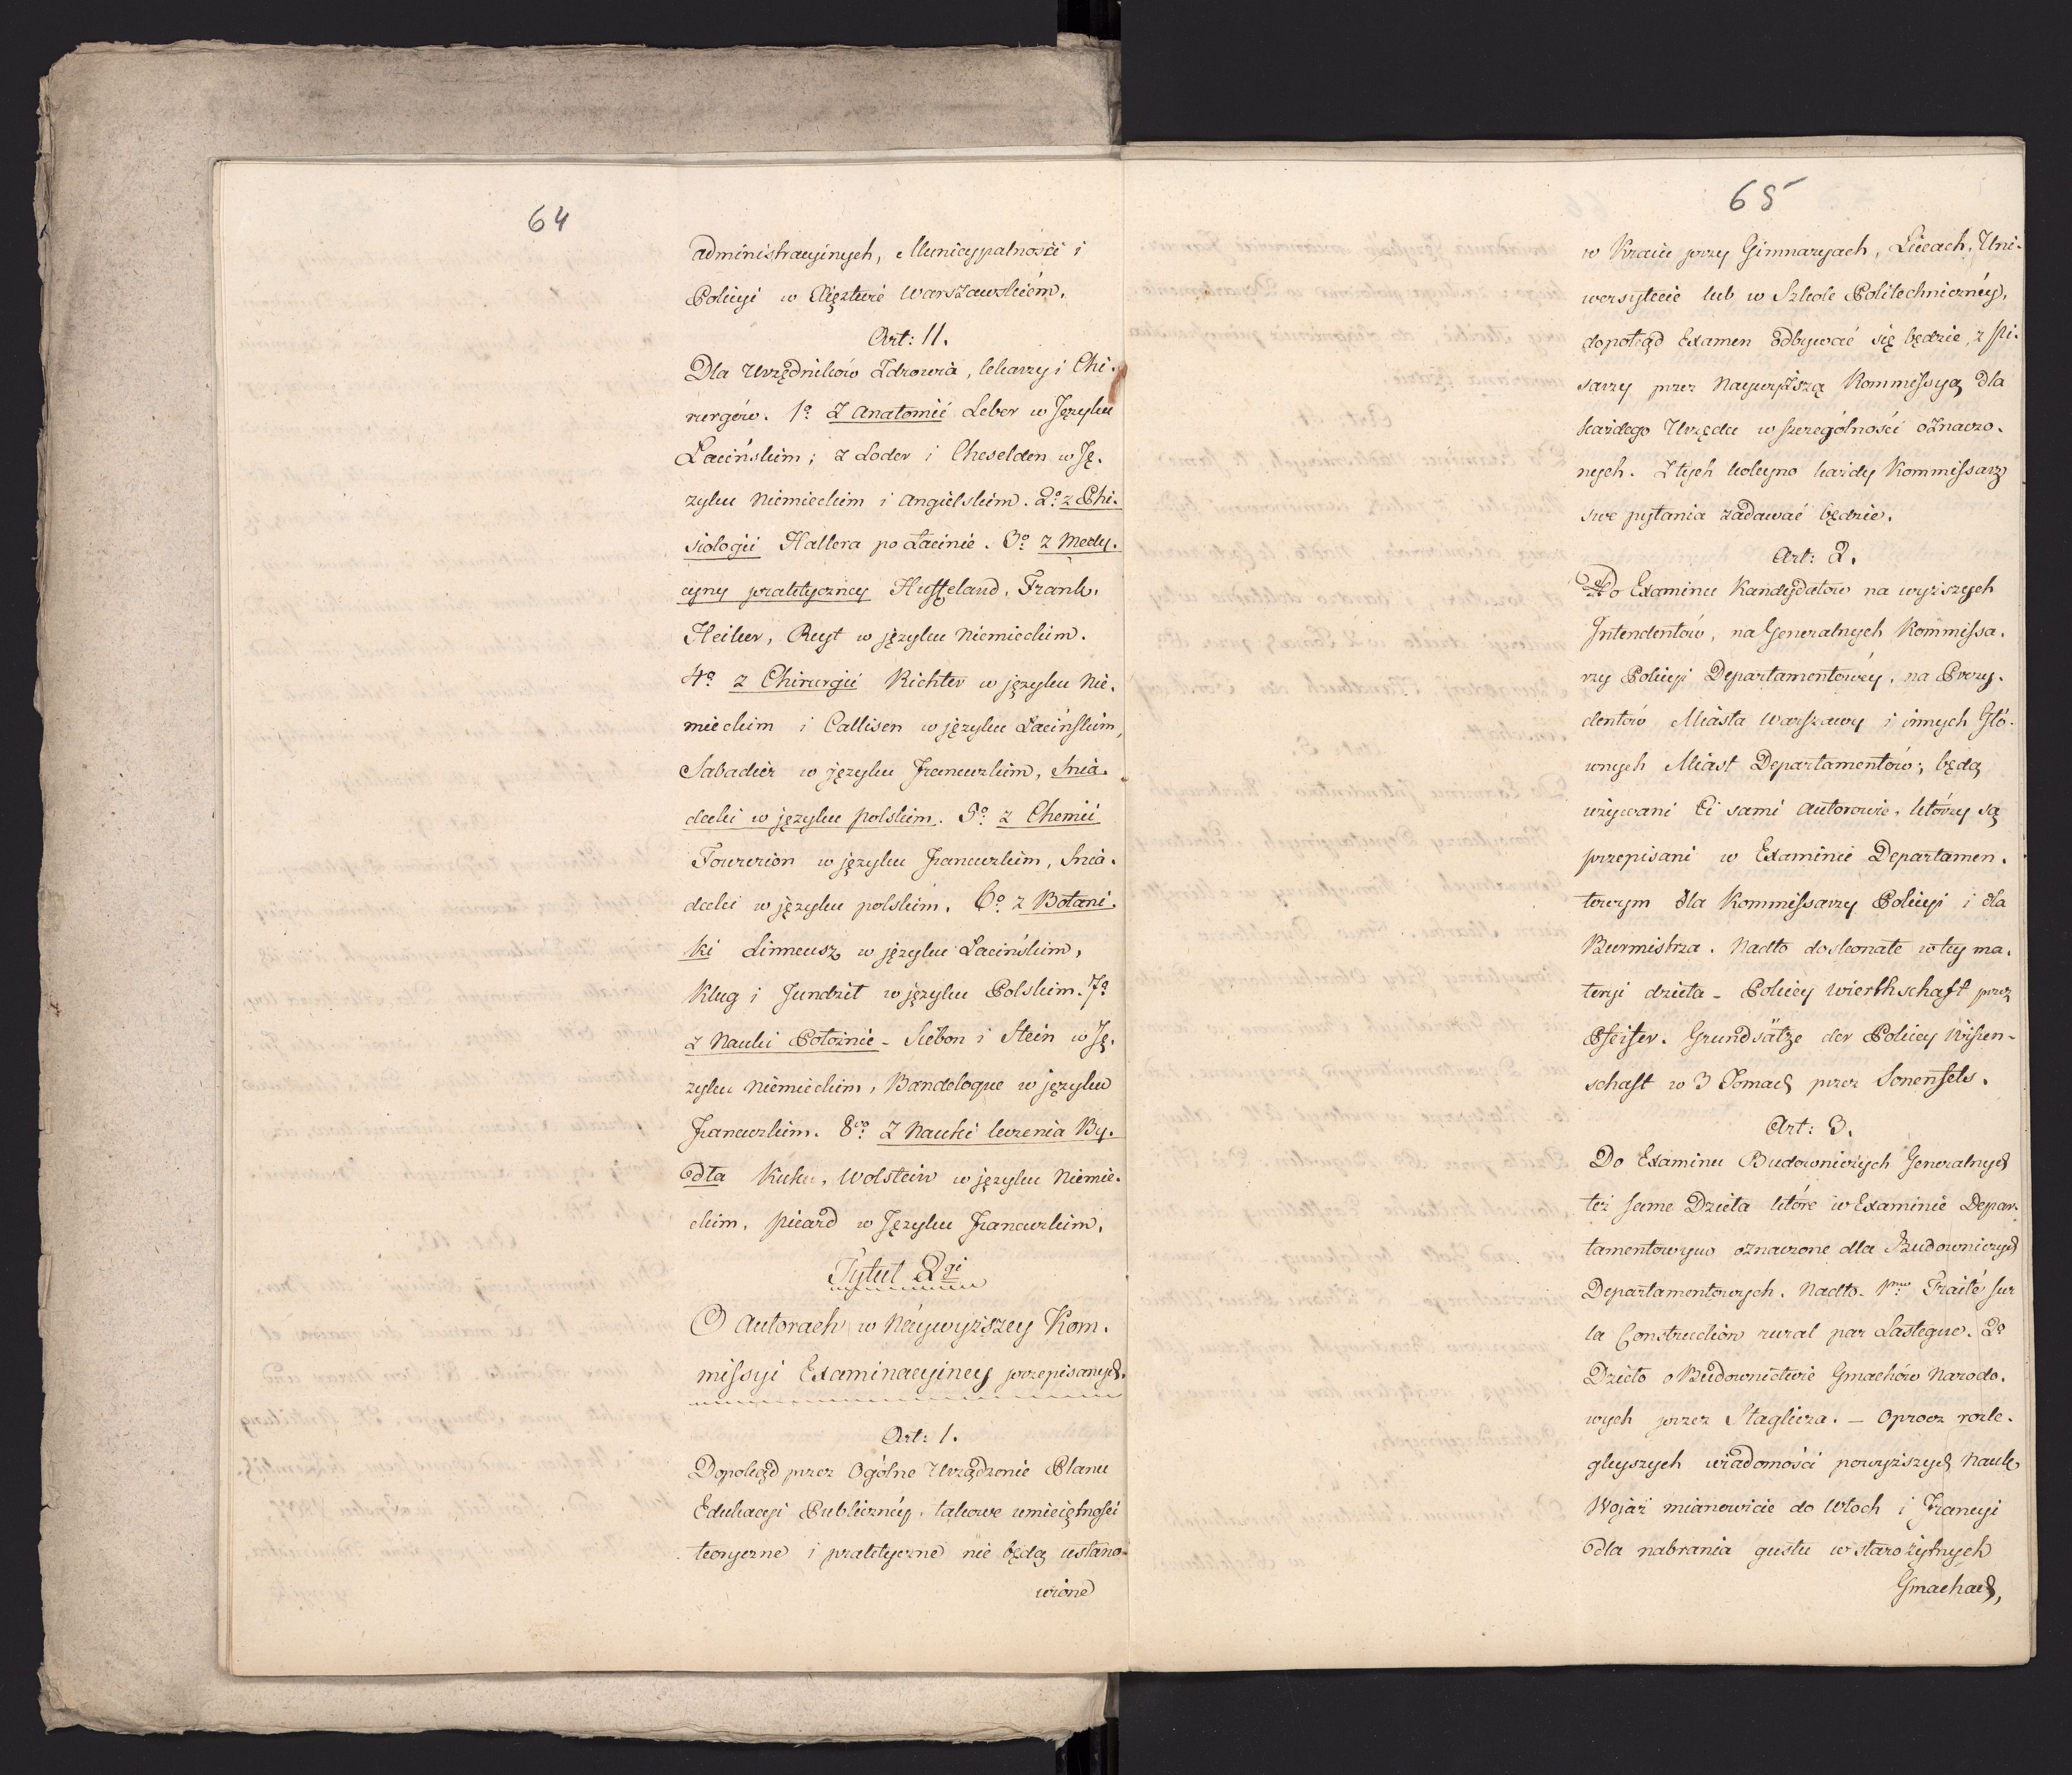 64
administracyinych, Municypalności i
Policyi w Xięztwie Warszawskiém.
Art: 11.
Dla Urzędników Zdrowia, lekarzy i Chi-
rurgów. 1º Z Anatomii Leber w Języku
Łacińskim; z Loder i Cheselden w Ję-
zyku Niemieckim i Angielskim. 2º z Phi-
siologii Hallera po Łacinie. 3º z Medy-
cyny praktyczney Huffeland, Frank,
Heiker, Ruyt w języku Niemieckim.
4º z Chirurgii Richter w języku Nie-
mieckim i Callisen w języku Łacińskim,
Sabadier w języku francuzkim, Snia-
decki w języku polskim. 5º z Chemii
Fourcrion w języku francuzkim, Snia-
decki w języku polskim. 6º z Botani-
ki Linneusz w języku Łacińskim,
Kług i Jundził w języku Polskim. 7º
z Nauki Położnic - Siebon i Stein w Ję-
zyku Niemieckim, Bandeloque w języku
francuzkim. 8vo Z Nauki leczenia By-
dła Kuhu, Wolstein w języku Niemie-
ckim, picard w Języku francuzkim.
Tytuł 2gi
O Autorach w Náywyższey Kom-
missyi Examinacyiney przepisanych.
Art: 1.
Dopokąd przez Ogólne Urządzenie Planu
Edukacyi Publicznéy, takowe umieiętności
teoryczne i praktyczne nie będą ustano-
wione
65
w Kraiu przy Gimnazyach, Liceach, Uni-
wersytecie lub w Szkole Politechnicznéy,
dopotąd Examen odbywać się będzie, z pi-
sarzy przez Naywyższą Kommissyą dla
każdego Urzędu w szczególności oznaczo-
nych. Z tych koleyno każdy Kommissarz
swe pytania zadawać będzie.
Art: 2.
Do Examinu Kandydatów na wyższych
Intendentów, na Generalnych Kommissa-
rzy Policyi Departamentowéy, na Prezy-
dentów Miasta Warszawy i innych Głó-
wnych Miast Departamentów; będą
używani Ci sami Autorowie, którzy są
przepisani w Examinie Departamen-
towym dla Kommissarzy Policyi i dla
Burmistrza. Nadto doskonałe w tey ma-
teryi dzieła - Policey Wierthschaft przez
Pfeifer. Grundsätze der Policey Wissen-
schaft w 3 Tomach przez Sonenfels.
Art: 3.
Do Examinu Budowniczych Generalnych
też same Dzieła które w Examinie Depar-
tamentowym oznaczone dla Budowniczych
Departamentowych. Nadto. 1mo Traité sur
la Construction rural par Lastegue. 2º
Dzieło o Budownictwie Gmachów Narodo-
wych przez Staglicza. - Oprocz rozle-
gleyszych wiadomości powyższych Nauk
Wojaż mianowicie do Włoch i Francyi
dla nabrania gustu w starożytnych
Gmachach,